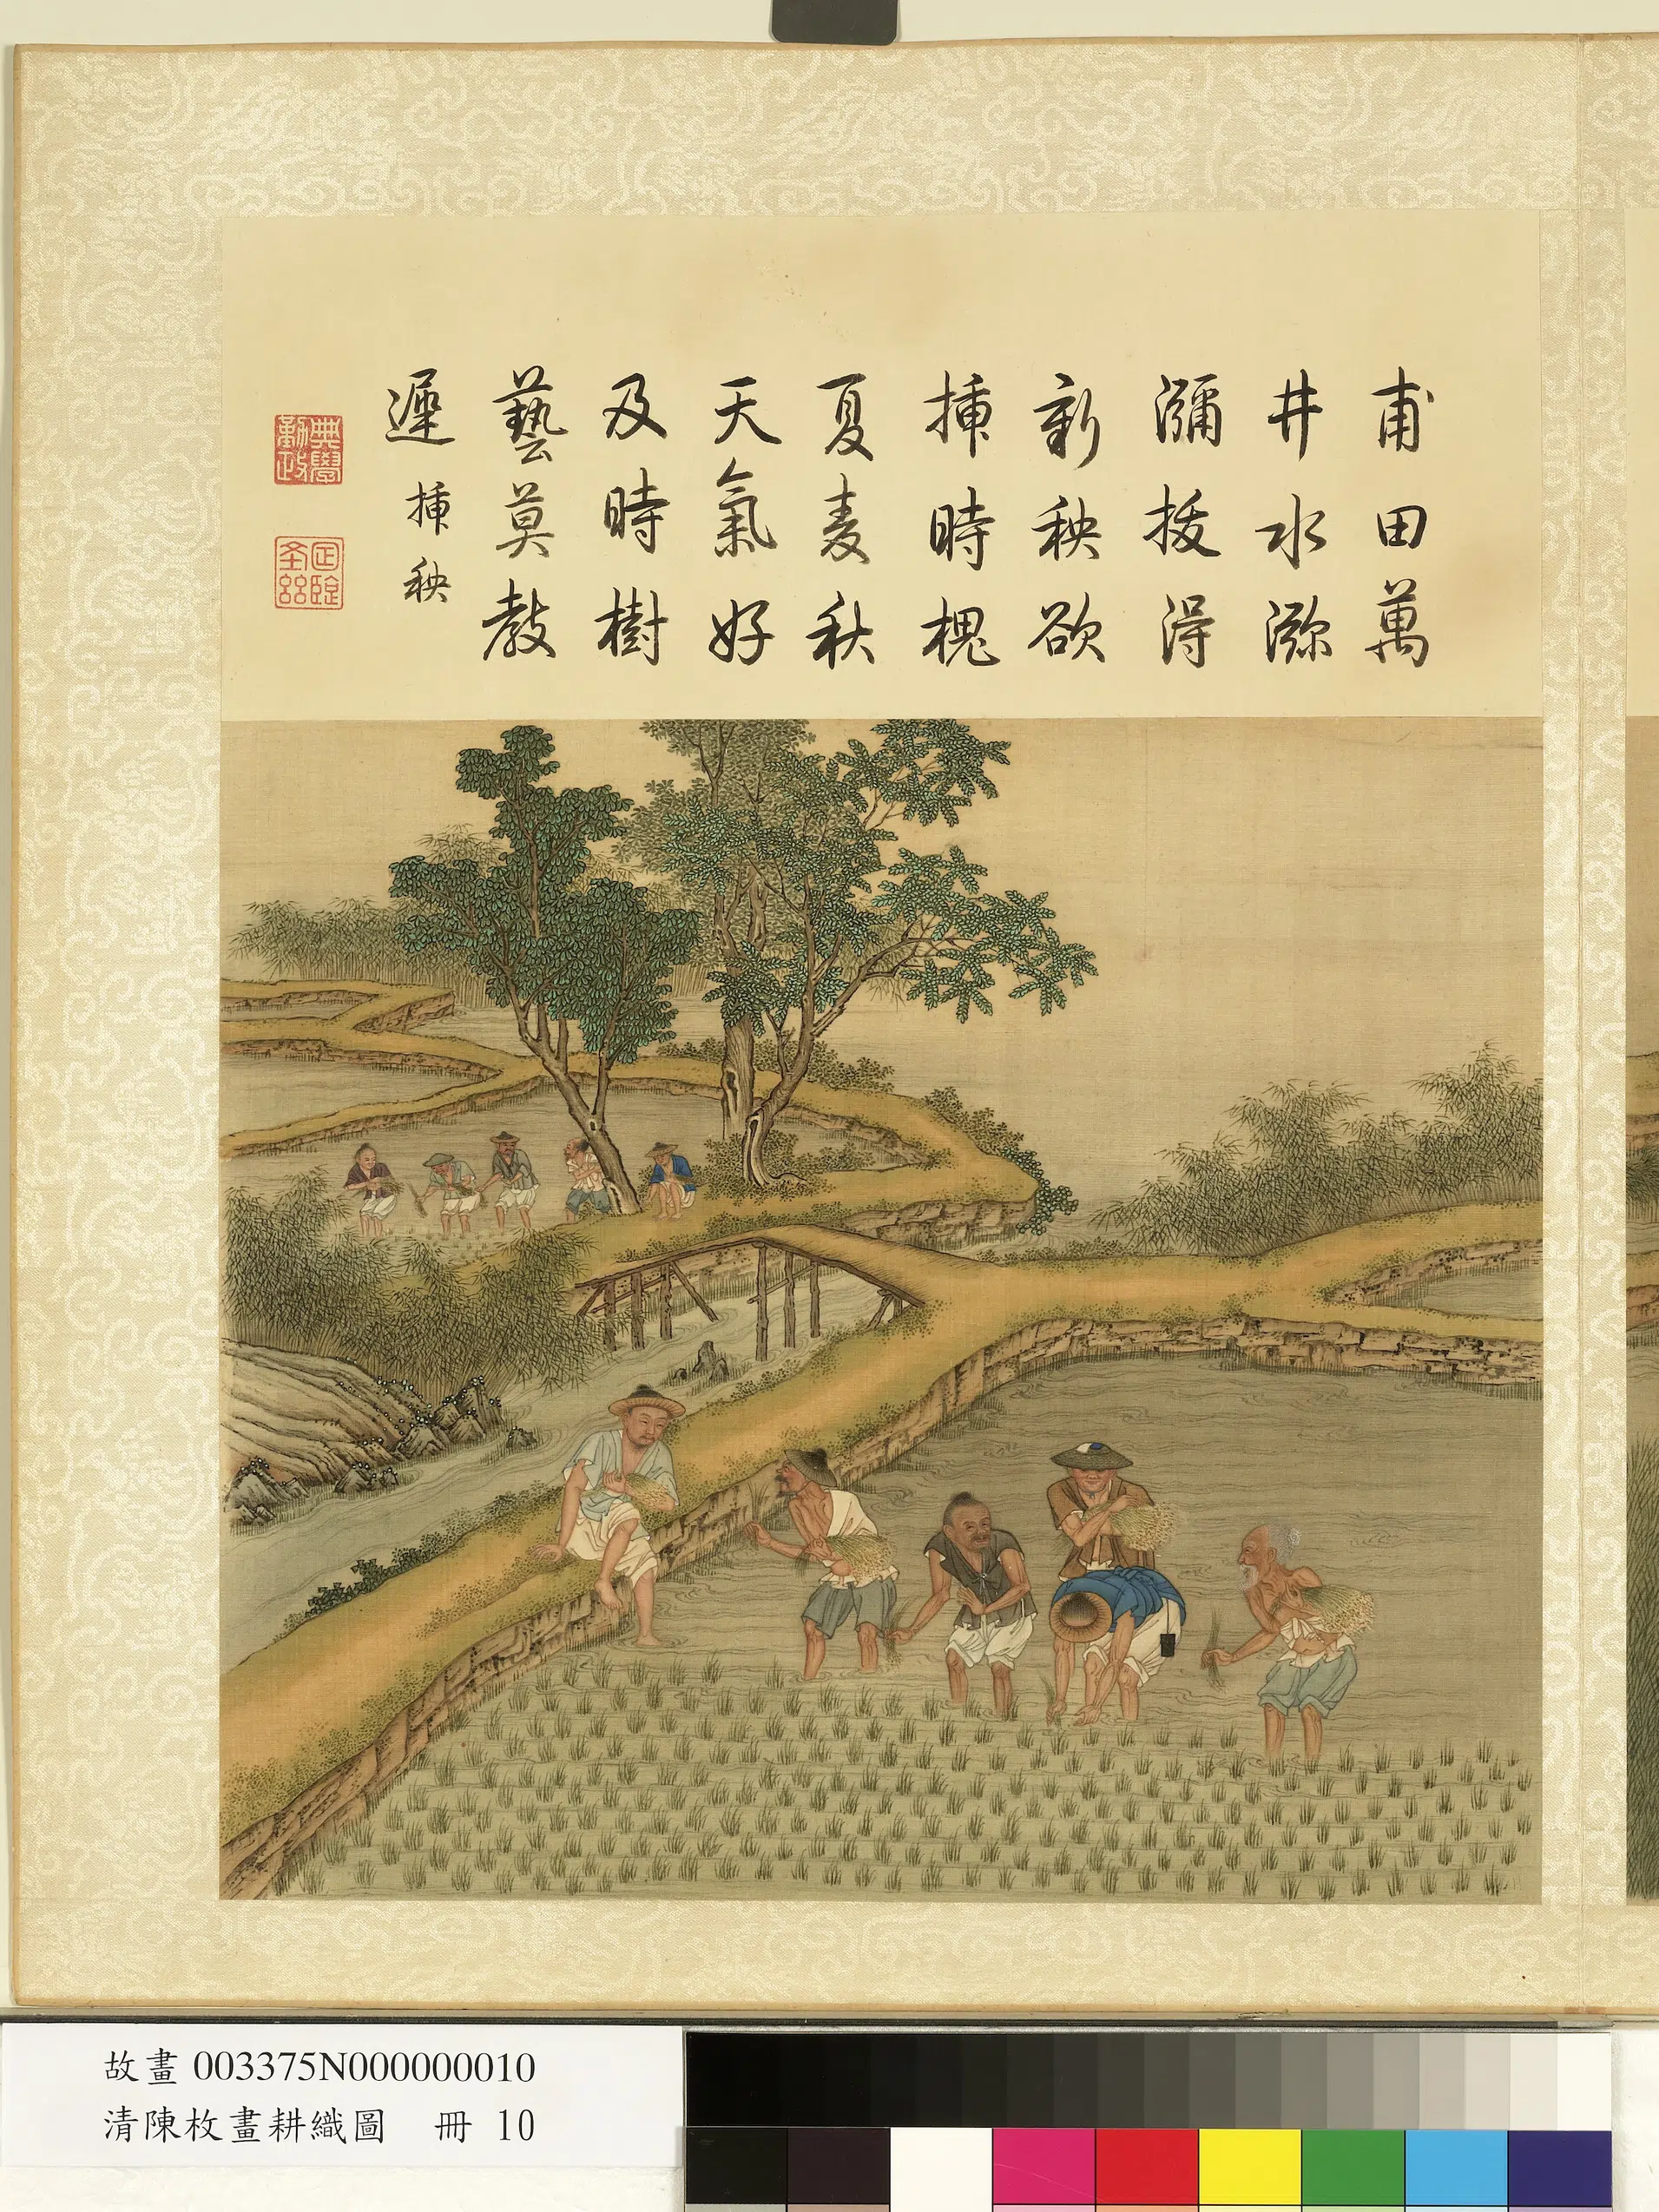 甫田萬
井水㳽
瀰拔得
新秧欲
揷時槐
夏麦秋
天氣好
及時樹
藝莫教
遲 揷秧
典學勤政
故畫 003375N000000010
清陳枚畫耕織圖 冊 10